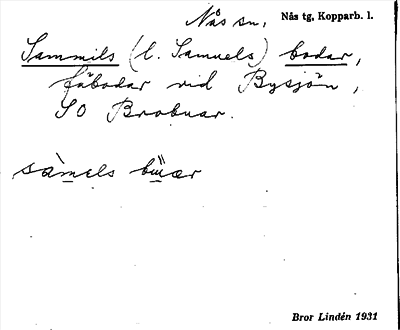 Nås sn. Nås tg, Kopparb. l.
Sammils (l. Samuels) bodar,
fäbodar vid Bysjön,
SO Brobuar.
sàmels
Bror Lindén 1931